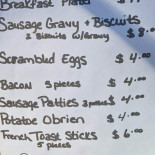 Breakfast Plates
Sausage Gravy + Biscuits
2 Biscuits w/Gravy $8.00
Scrambled Eggs $4.00
Bacon 3 pieces $4.00
Sausage Patties 2 pieces $4.00
Potatoe Obrien $4.00
French Toast Sticks $6.00
5 pieces